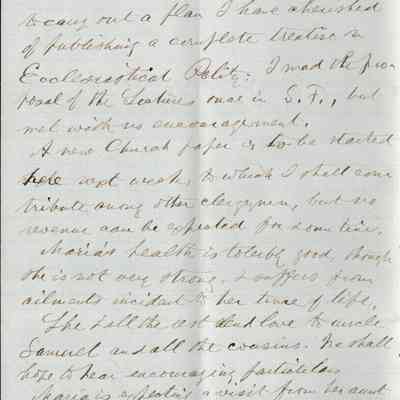 to carry out a plan I have cherished
of publishing a complete treatise on
Ecclesiastical Polity. I mad the pro-
posal of the Lectures once in S. F., but
met with no encouragement.
A new Church paper is to be started
here next week, to which I shall con-
tribute among other clergymen, but no
revenue can be expected for some time.
Maria's health is tolerbly good, though
she is not very strong, & suffers from
ailments incident to her time of life.
She & all the rest send love to uncle
Samuel and all the cousins. We shall
hope to hear encouraging particulars
Maria is expecting a visit from her aunt